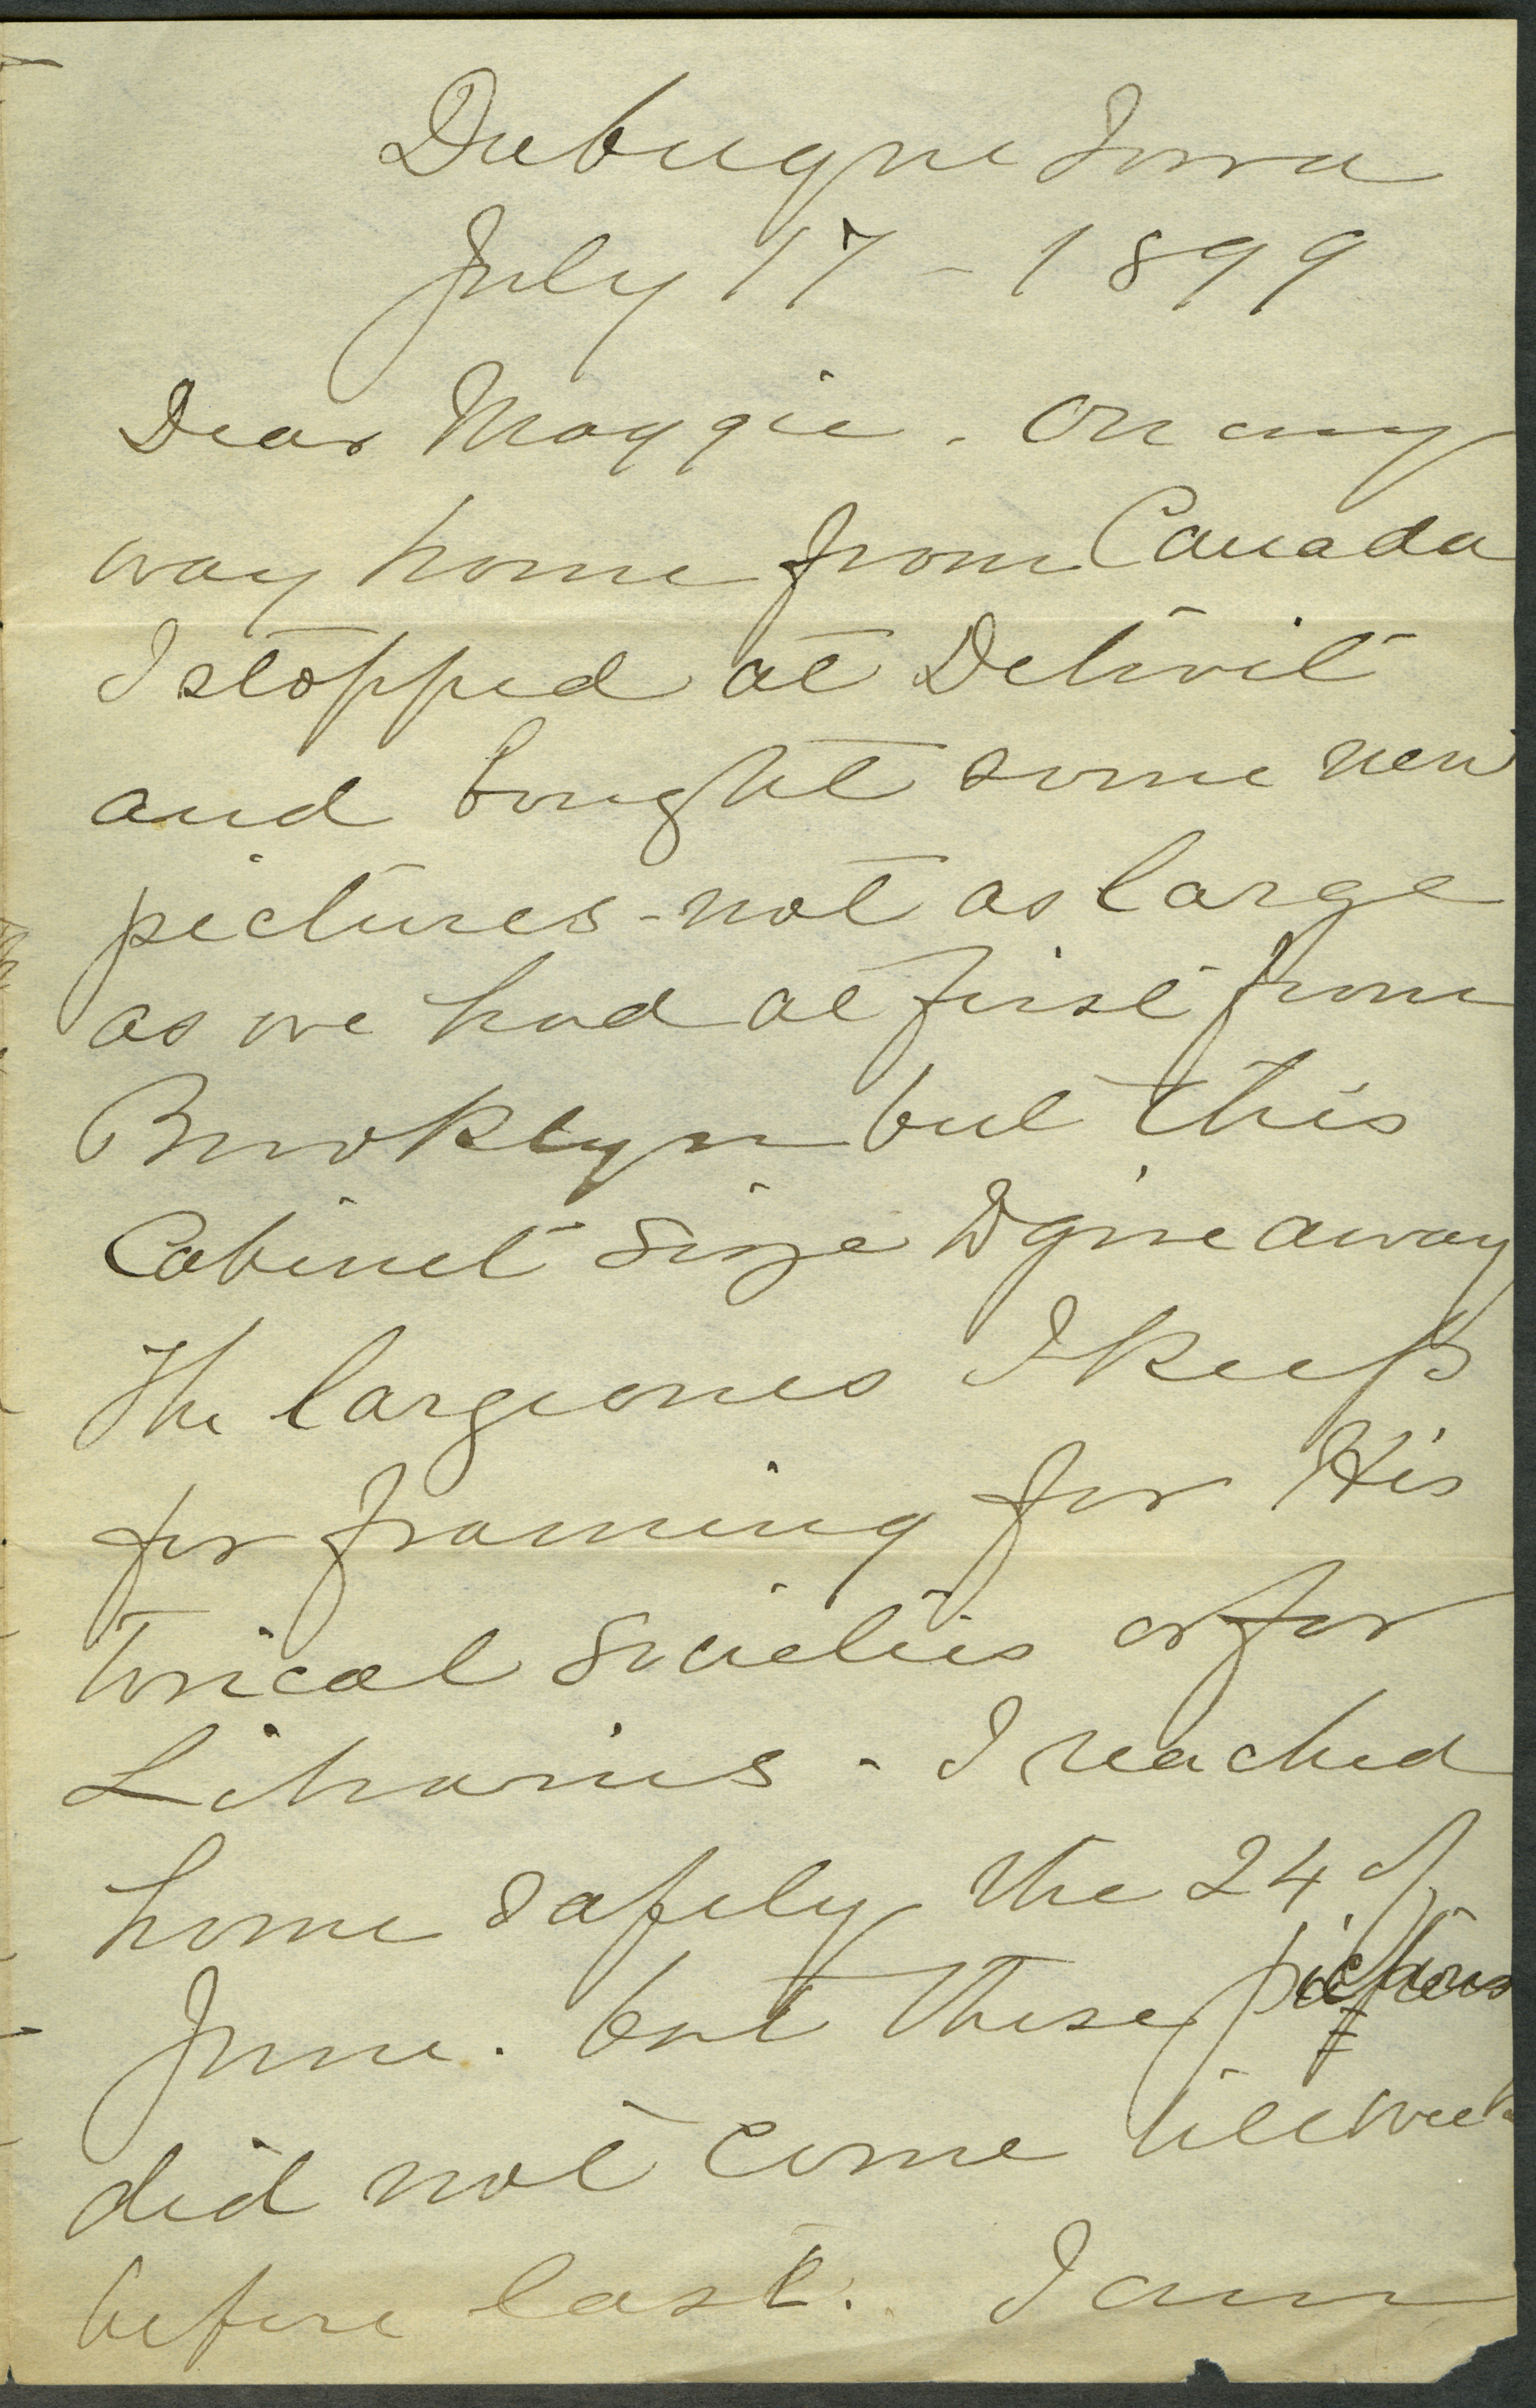 Dubuque Iowa
July 17 - 1899
Dear Maggie. On my
way home from Canada
I stopped at Detroit
and bought some new
pictures - not as large
as we had at first from
Brooklyn but this
Cabinet size I give away
The large ones I keep
for framing for His
torical Societies or for
Libraries - I reached
home safely the 24 of
June. but these pictures
did not come till week
before last. I am